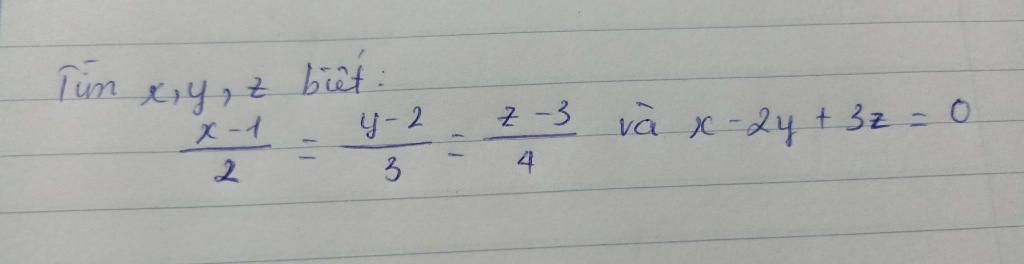 Tìm x, y, z biết:
\frac{x-1}{2} = \frac{y-2}{3} = \frac{z-3}{4} và x - 2y + 3z = 0